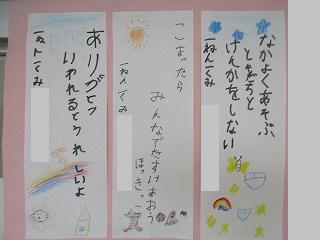 なかよくあそぶ
ともだちと
けんかをしない
一ねん一くみ
こまったら
みんなでたすけあおう
ほっきっこ
一ねん一くみ
ありがとう
いわれるとうれしいよ
一ねん一くみ